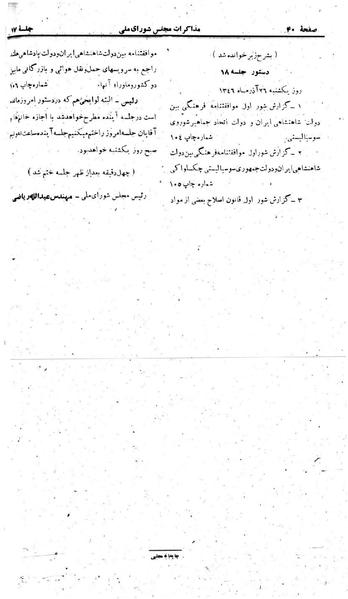 صفحهٔ ۴۰ مذاکرات مجلس شورای ملی جلسهٔ ۱۷
( بشرح زیر خوانده شد )
دستور جلسه ۱۸
روز یکشنبه ۲۶ آذر ماه ۱۳۴۶
۱ - گزارش شور اول موافقتنامه فرهنگی بین
دولت شاهنشاهی ایران و دولت اتحاد جماهیر شوروی
سوسیالیستی شماره چاپ ۱۰۴
۲ - گزارش شور اول موافقتنامه فرهنگی بین دولت
شاهنشاهی ایران و دولت جمهوری سوسیالیستی چکسلواکی
شماره چاپ ۱۰۵
۳ - گزارش شور اول قانون اصلاح بعضی از مواد
موافقتنامه بین دولت شاهنشاهی ایران و دولت پادشاهی هلند
راجع به سرویسهای حمل و نقل هوائی و بازرگانی مابین
دو کشور و ماوراء آنها. شماره چاپ ۱۰۶
رئیس - البته لوایحی هم که در دستور امروز ماند
در جلسه آینده مطرح خواهد شد با اجازه خانمها و
آقایان جلسه امروز را ختم میکنیم جلسه آینده ساعت نه و نیم
صبح روز یکشنبه خواهد بود.
( چهل دقیقه بعد از ظهر جلسه ختم شد )
رئیس مجلس شورای ملی - مهندس عبدالله ریاضی
چاپخانه مجلس